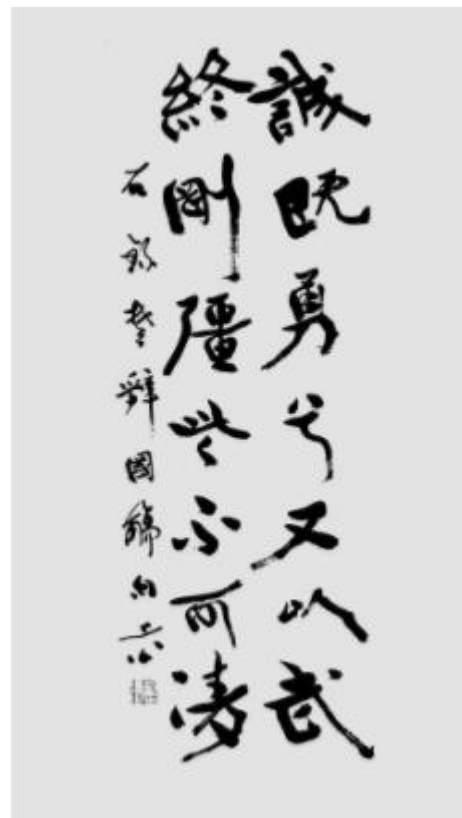 誠既勇兮又以武
終剛彊兮不可凌
右錄楚辭國殤句